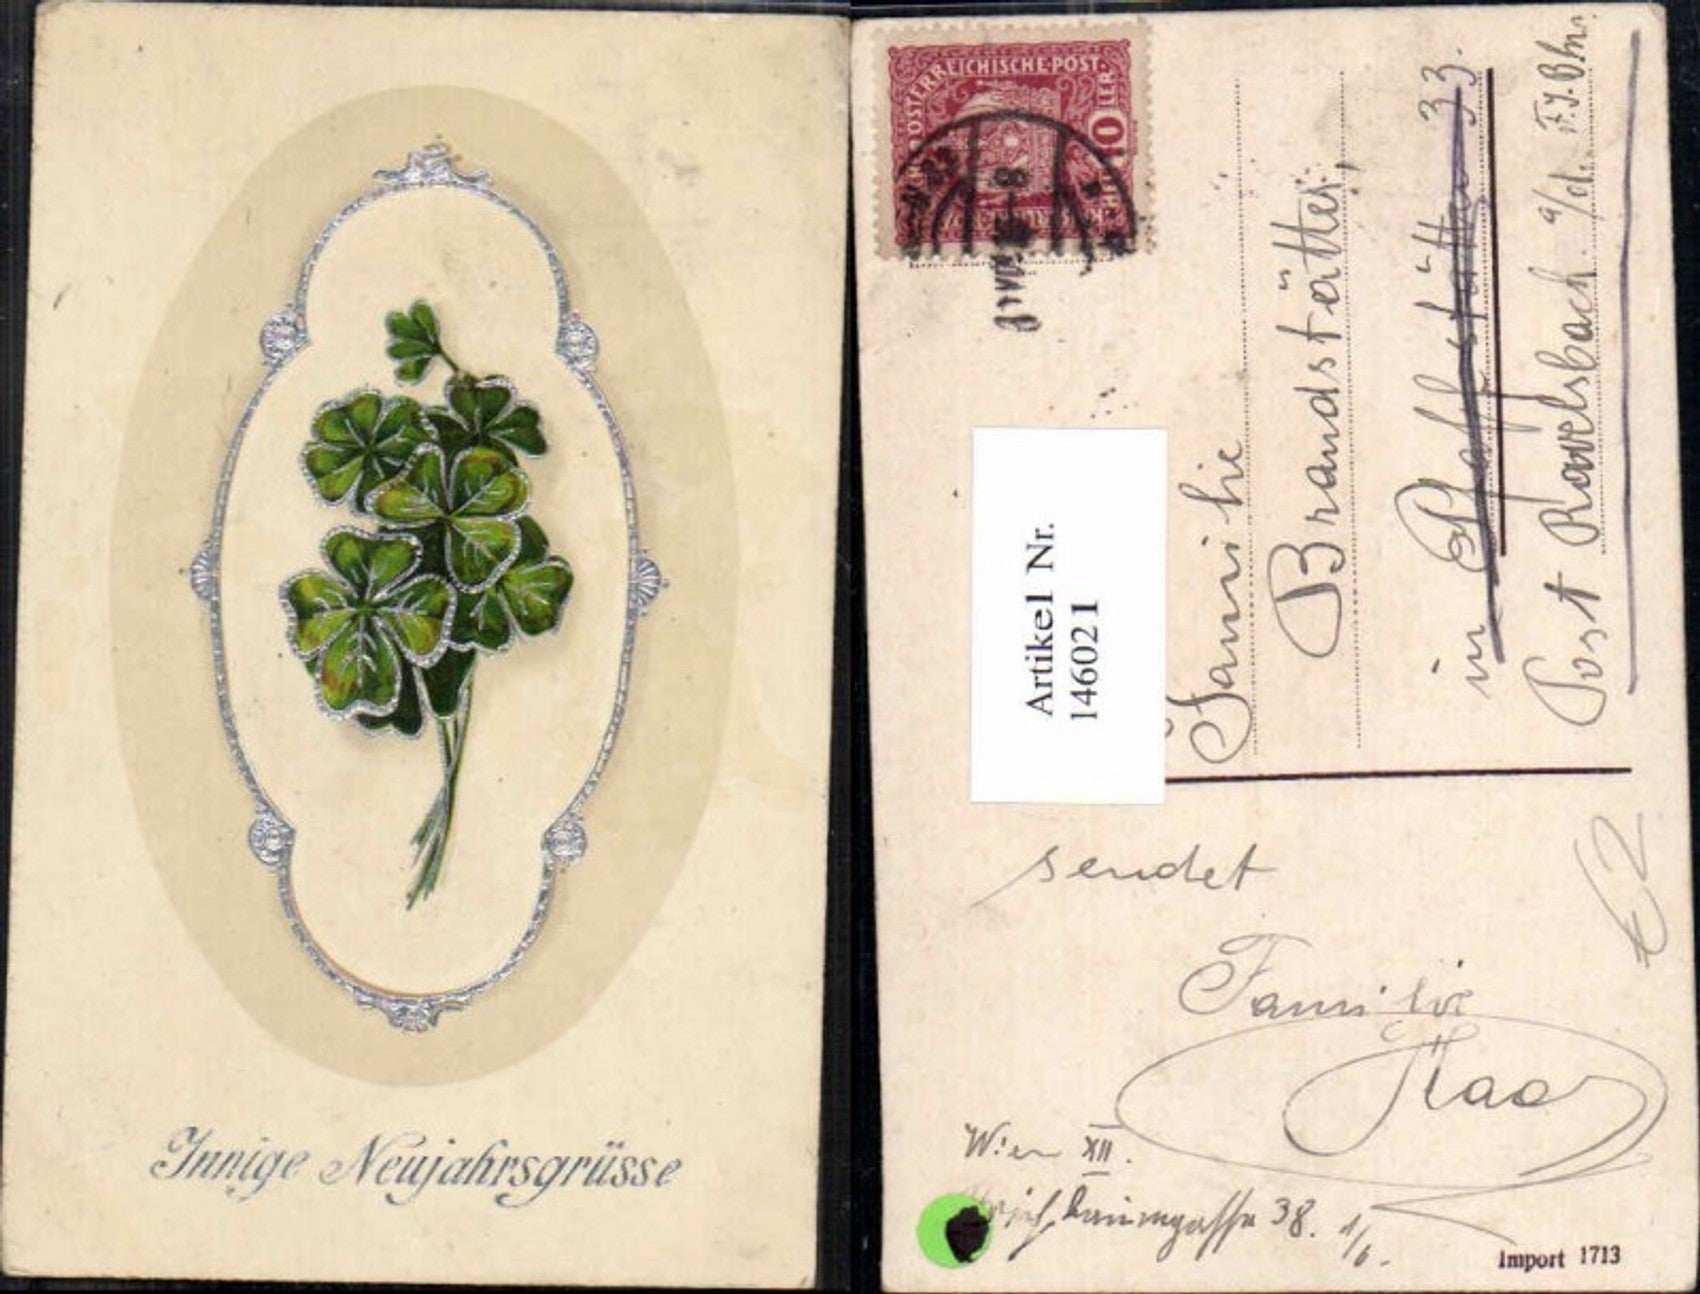 Innige Neujahrsgrüsse
ÖSTERREICHISCHE·POST.
10
Artikel Nr.
146021
Familie
Brandstätter,
in 33.
Post Ravelsbach. a/d. F.J.Bhn.
sendet
Familie
Haas
Wien XII.
38. 1/6.
€2
Import 1713